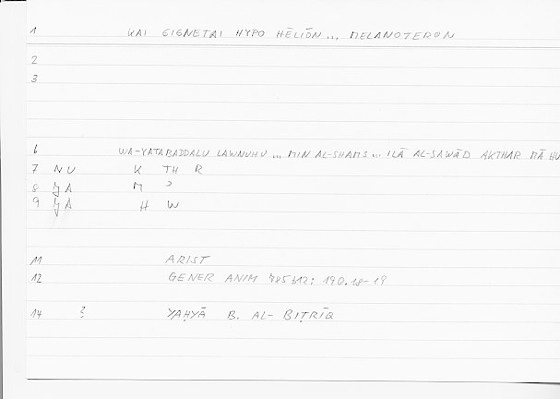 1 KAI GIGNETAI HYPO HĒLIŌN ... MELANOTERON
2
3
6 WA-YATABADDALU LAWNUHU ... MIN AL-SHAMS ... ILĀ AL-SAWĀD AKTHAR MĀ HU
7 NU K TH R
8 M ʾ
9 H W
11 ARIST
12 GENER ANIM 785b12: 190.18-19
14 YAḤYĀ B. AL-BIṬRĪQ